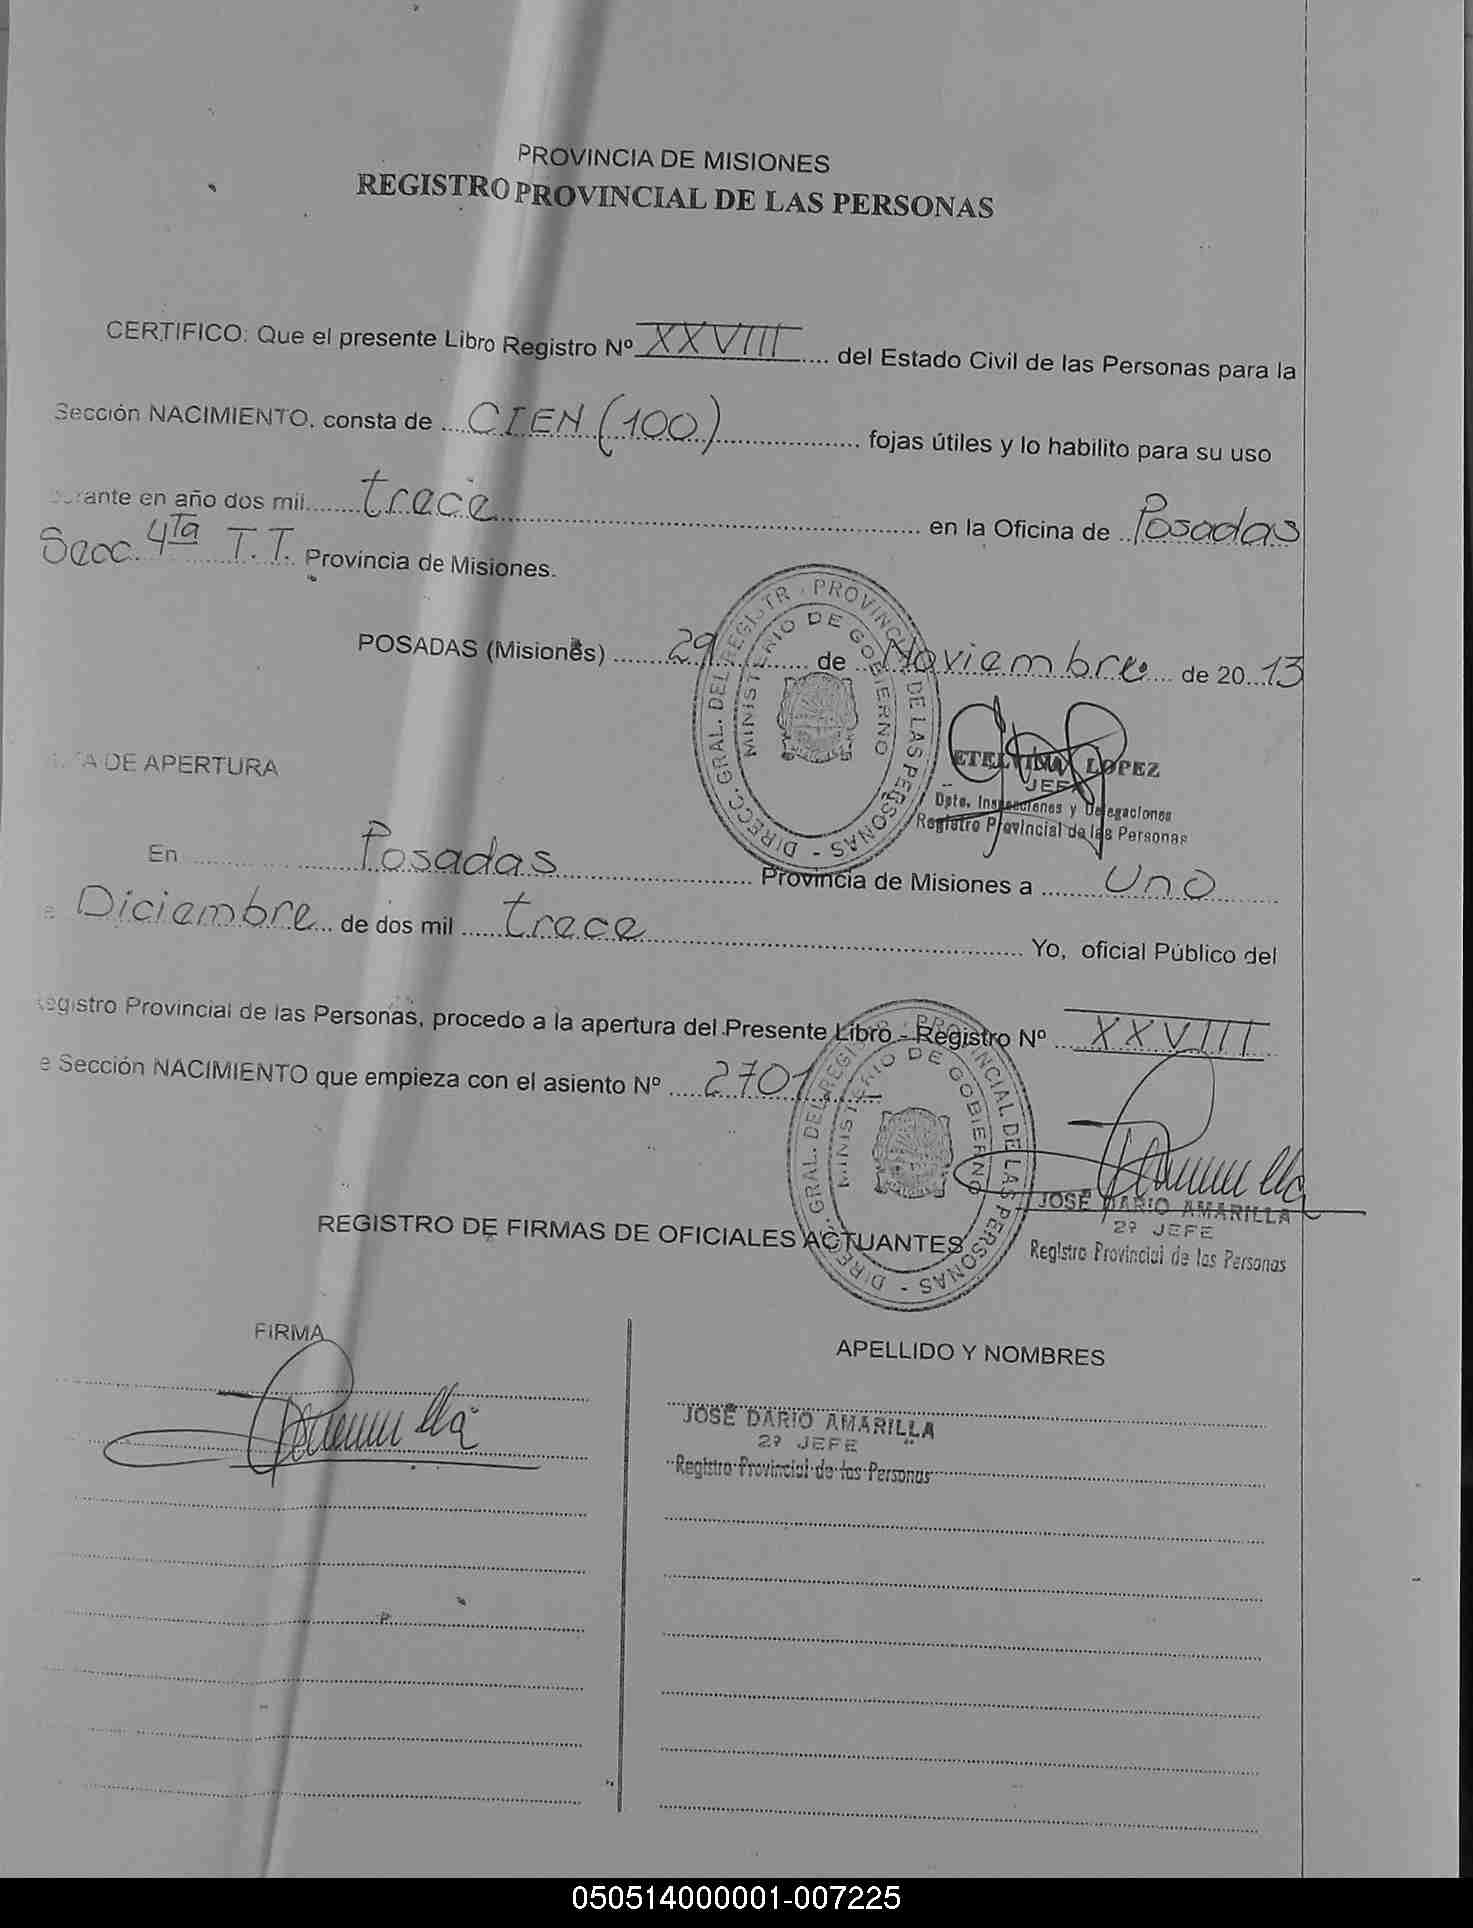 PROVINCIA DE MISIONES
REGISTRO PROVINCIAL DE LAS PERSONAS
CERTIFICO: Que el presente Libro Registro Nº XXVIII del Estado Civil de las Personas para la
Sección NACIMIENTO, consta de CIEN (100) fojas útiles y lo habilito para su uso
durante en año dos mil trece en la Oficina de Posadas
Secc. 4ta T.T. Provincia de Misiones.
POSADAS (Misiones) 29 de Noviembre de 2013
DIRECC. GRAL. DEL REGISTR. PROVINCIAL DE LAS PERSONAS
MINISTERIO DE GOBIERNO
ETELVINA LOPEZ
JEFA
Dpto. Inspecciones y Delegaciones
Registro Provincial de las Personas
DE APERTURA
En Posadas Provincia de Misiones a Uno
Diciembre de dos mil trece Yo, oficial Público del
Registro Provincial de las Personas, procedo a la apertura del Presente Libro - Registro Nº XXVIII
e Sección NACIMIENTO que empieza con el asiento Nº 2701
DIRECC. GRAL. DEL REGISTR. PROVINCIAL DE LAS PERSONAS
MINISTERIO DE GOBIERNO
JOSÉ DARIO AMARILLA
2º JEFE
Registro Provincial de las Personas
REGISTRO DE FIRMAS DE OFICIALES ACTUANTES
FIRMA
APELLIDO Y NOMBRES
JOSÉ DARIO AMARILLA
2º JEFE
Registro Provincial de las Personas
050514000001-007225